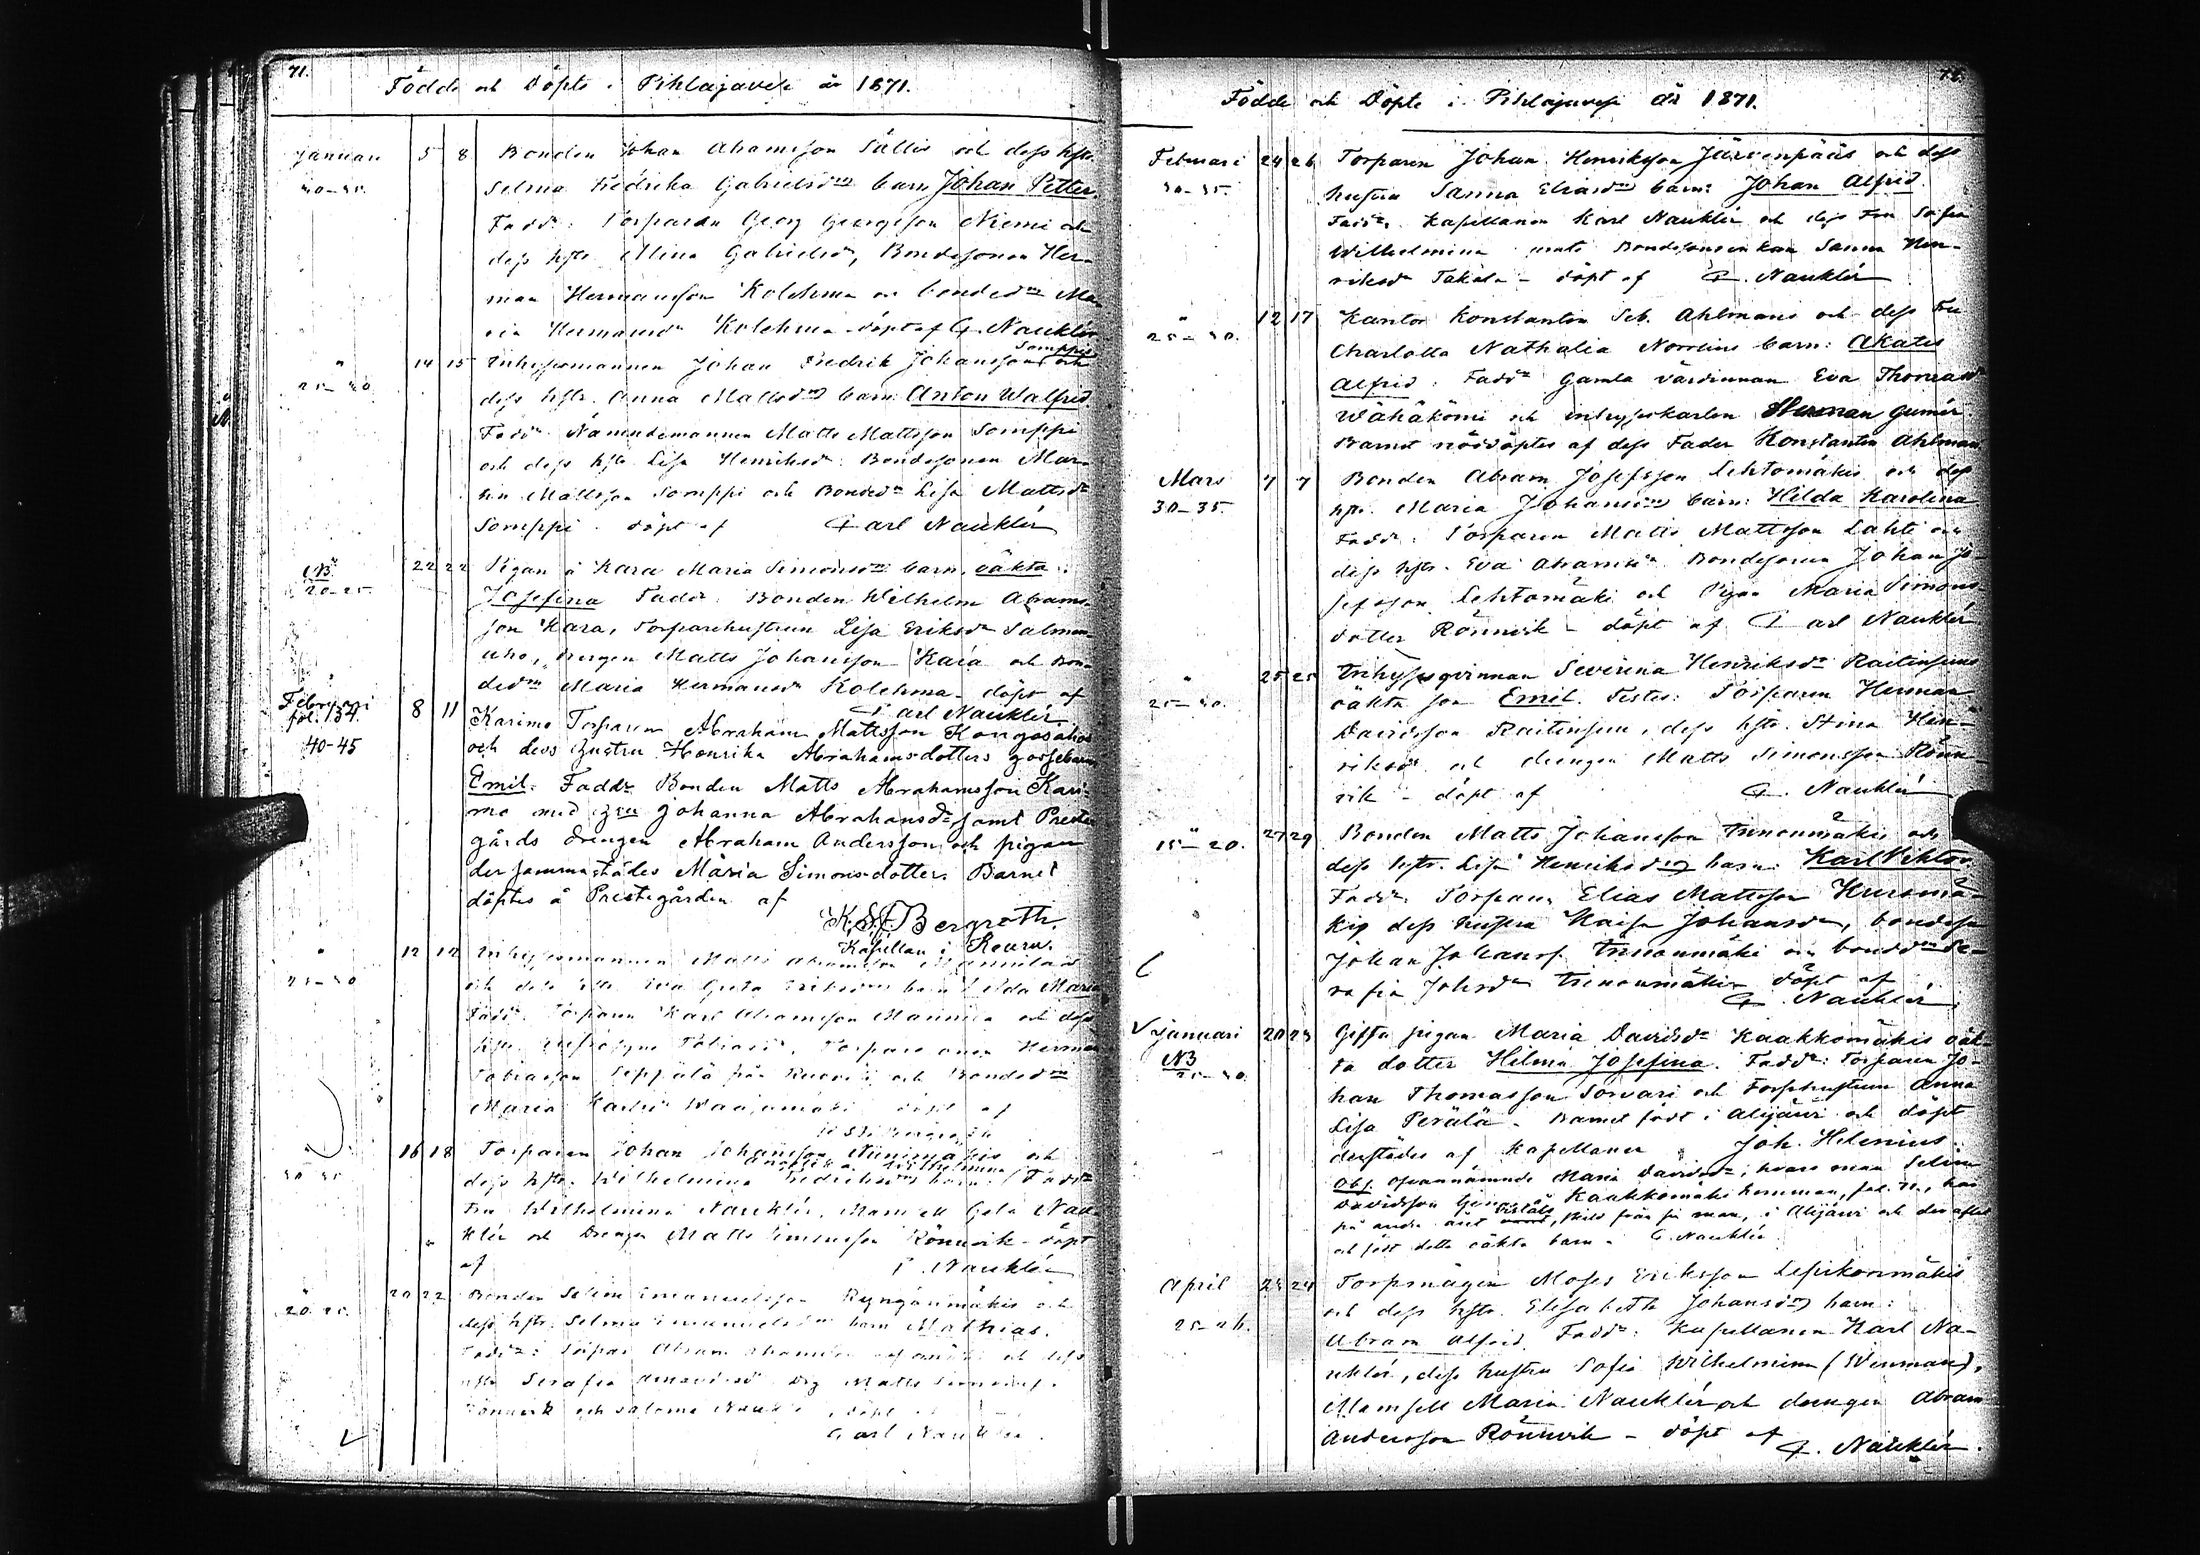 71.
Födde och Döpte i Pihlajavesi år 1871.
Januari 5 8 Bonden Johan Abramsson Sällis och dess hstr.
30-35. Selma Fredrika Gabrielsdrs barn Johan Petter.
Fadd: Torparen Georg Georgsson Niemi och
dess hstr Mina Gabrielsd, Bondesonen Her-
man Hermansson Kolehma och bondedn Ma
ria Hermansdr Kolehma - döpt af C. Nauklér
" 14 15 Inhysesmannen Johan Fredrik Johansson Somppis och
25-30. dess hstr. Anna Mattsdrs barn: Anton Walfrid.
Faddr Nämndemannen Matts Mattsson Somppi
och dess hstr Lisa Henriksdr. Bondesonen Mar-
tin Mattsson Somppi och Bondedr Lisa Mattsdr
Somppi. döpt af Carl Nauklér
NB 22 22 Pigan å Kara Maria Simonsdrs barn, oäkta:
20-25. Josefina Faddr: Bonden Wilhelm Abrams-
son Kara, Torparehustrun Lisa Eriksdr Salmen-
uho, drengen Matts Johansson Kara och Bon-
dedr Maria Hermansdr Kolehma - döpt af
Carl Nauklér
Februari 8 11 Karimo Torparen Abraham Mattsson Kongasahos
fol. 134. och dess hustru Henrika Abrahamsdotters gossebarn
40-45 Emil. Faddr Bonden Matts Abrahamsson Kari-
mo med hru Johanna Abrahamsdr, samt Preste
gårds drengen Abraham Andersson och pigan
der sammastädes Maria Simonsdotter. Barnet
döptes å Prestegården af
K. S. Bergroth.
Kapellan i Keuru.
" 12 12 Inhysesmannen Matts Abramsson Mannilas
25-30 och dess hstr Eva Greta Eriksdrs barn Hilda Maria
Faddr. Torparen Karl Abramsson Mannila och dess
hstr Tobiasd. Torpare Herman
Tobiasson Seppälä från Ruovesi och Bondedr
Maria Waajamäki döpt af
Bergroth
" 16 18 Torparen Johan Johansson Niinimäkis och
30-35 dess hstr. Wilhelmina Fredriksdrs barn: Wilhelmina Faddr
Fru Wilhelmina Nauklér, Mamsell Nau
klér och Drengen Matts Simonsson Rönnvik - döpt
af C. Nauklér
" 20 22 Bonden Selim Emanuelsson Kyngänmäkis och
20-25. dess hstr. Selma Emanuelsdrs barn Mathias.
Faddr: Torpar Abram och dess
hstr Serafia dreng Matts Simonss.
Rönnvik och Salome Nauklér, döpt
Carl Nauklér.
Födde och Döpte i Pihlajavesi År 1871.
Februari 24 26 Torparen Johan Henriksson Järvenpääs och dess
30-35. hustru Sanna Eliasdrs barn: Johan Alfrid.
Faddr. Kapellanen Karl Nauklér och dess Fru Sofia
Wilhelmina samt Bondesonenskan Sanna Hen-
riksdr Takala - döpt af C. Nauklér
" 12 17 Kantor Konstantin Seb. Ahlmans och dess Fru
25-30. Charlotta Nathalia Norrlins barn: Akates
Alfrid. Faddr Gamla värdinnan Eva Thomasdr
Wähäkömi och inhyseskarlen Herman Gumér.
Barnet nöddöptes af dess Fader Konstantin Ahlman
Mars 7 7 Bonden Abram Josefsson Lehtomäkis och dess
30-35. hstr. Maria Johansdrs barn: Hilda Karolina
Faddr: Torparen Matts Mattsson Lahti och
dess hstr. Eva Abramsdr. Bondesonen Johan Jo-
sefsson Lehtomäki och Pigan Maria Simons-
dotter Rönnvik - döpt af Carl Nauklér
" 25 25 Inhysesqvinnan Severina Henriksdr Raitinsuus
25-30. oäkta son Emil. Testes: Torparen Herman
Davidsson Raitinsuu, dess hstr. Stina Hen-
riksdr och drengen Matts Simonsson Rönn-
vik - döpt af C. Nauklér
" 27 29 Bonden Matts Johansson Innonmäkis och
15-20. dess hstr. Lisa Henriksdrs barn: Karl Viktor.
Faddr. Torparen Elias Mattsson Kuremä-
ki, dess hustru Kaisa Johansdr, bondeson
Johan Johanss. Innonmäki och bondedr Se-
rafia Johsdr Innonmäki döpt af
C. Nauklér.
Januari 20 23 Giftu pigan Maria Davidsdr Kaakkomäkis oäk-
NB ta dotter Helma Josefina. Faddr: Torparen Jo-
25-30. han Thomasson Sorvari och Torphustrun Anna
Lisa Perälä. Barnet födt i Alajärvi och döpt
derstädes af Kapellanen Joh. Helenius.
Obs. ofvannämnde Maria Davidsdr, hvars man Selim
Davidsson Kaakkomäki hemman,
på andra året, skild från sin man, i Alajärvi och der aflat
och födt detta oäkta barn. C. Nauklér
April 23 24 Torpmågen Moses Eriksson Lepikonmäkis
25-26. och dess hstr. Elisabeth Johansdrs barn:
Abram Alfrid. Faddr: Kapellanen Karl Na-
uklér, dess hustru Sofia Wilhelmina (Winman),
Mamsell Maria Nauklér och drengen Abram
Andersson Rönnvik - döpt af C. Nauklér.